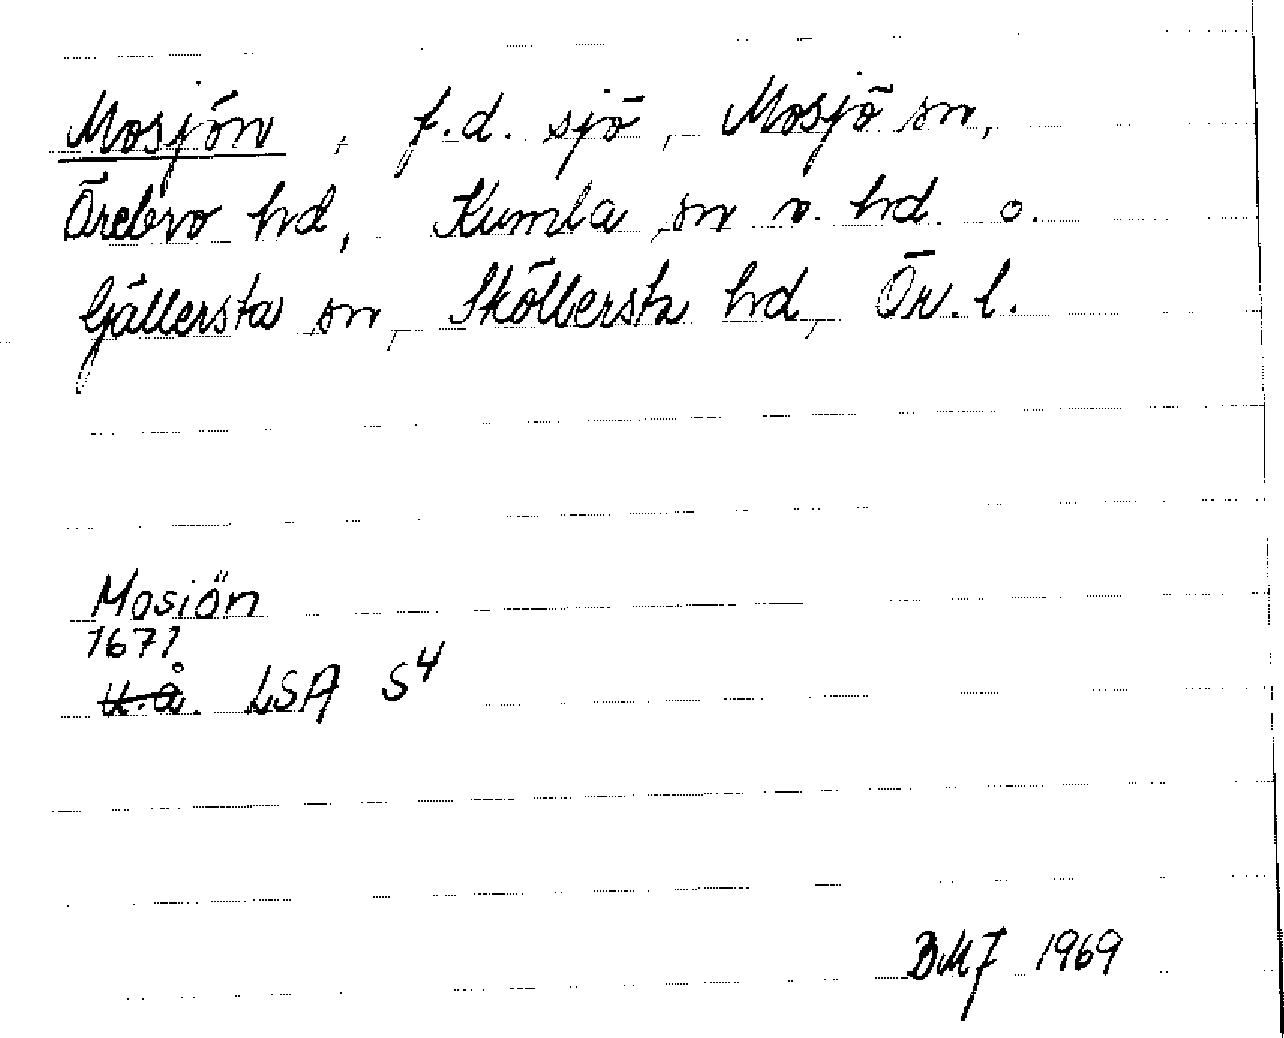 Mosjön, f.d. sjö, Mosjö sn,
Örebro hd, Kumla sn o. hd. o.
Gällersta sn, Sköllersta hd, Ör. l.
Mosiön
1671
u.å. LSA S4
BMJ 1969